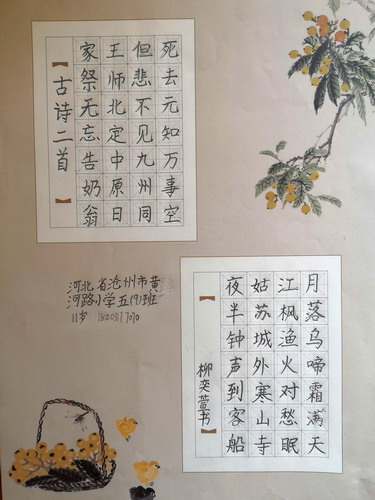 死去元知万事空
但悲不见九州同
王师北定中原日
家祭无忘告奶翁
古诗二首
河北省沧州市黄
河路小学五班
11岁
月落乌啼霜满天
江枫渔火对愁眠
姑苏城外寒山寺
夜半钟声到客船
柳奕萱书